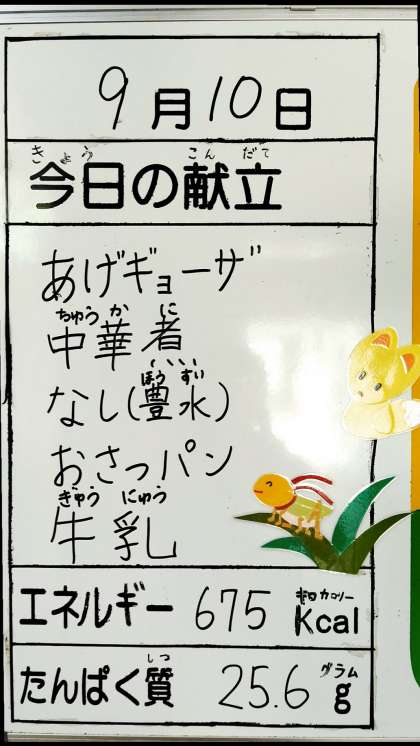 9月10日
きょう こんだて
今日の献立
あげギョーザ
ちゅうかに
中華煮
ほうすい
なし(豊水)
おさつパン
ぎゅうにゅう
牛乳
エネルギー 675 キロカロリー Kcal
たんぱく質 しつ 25.6 グラム g